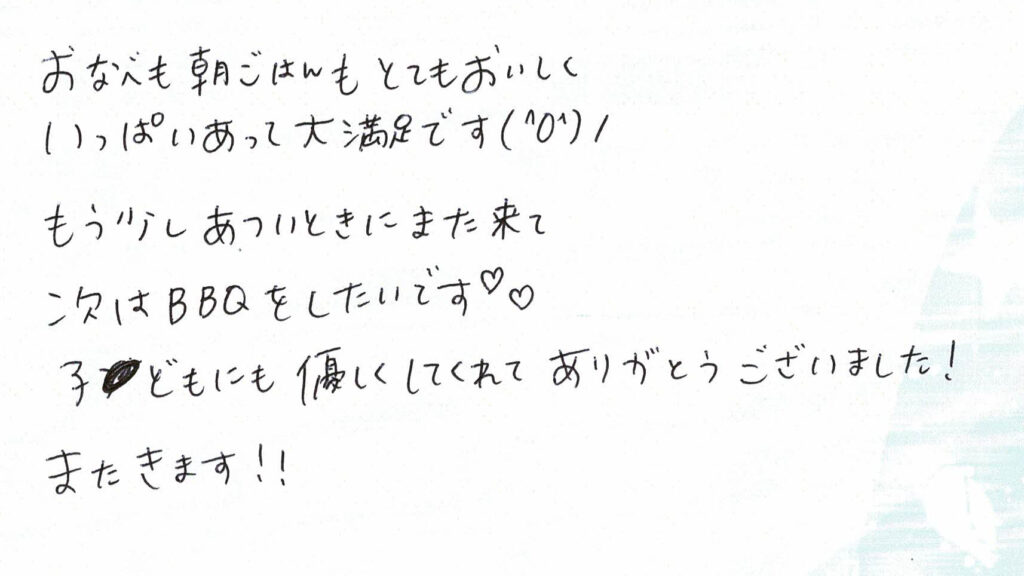 おなべも朝ごはんもとてもおいしく
いっぱいあって大満足です(^0^)/
もう少しあついときにまた来て
次はBBQをしたいです♡♡
子どもにも優しくしてくれてありがとうございました!
またきます!!